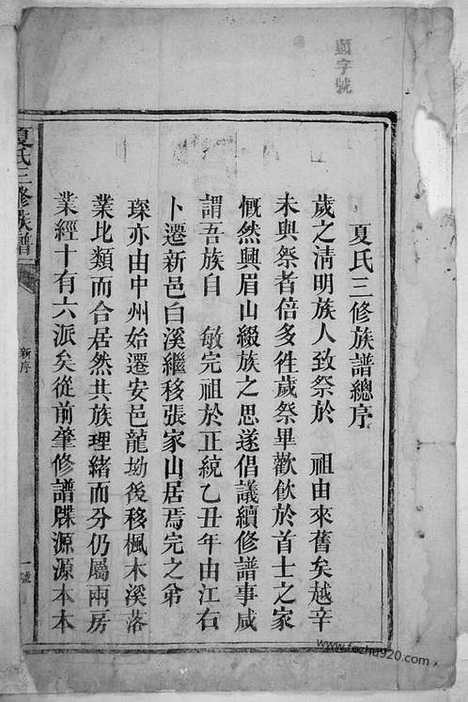 顯字號
夏氏三修族譜總序
歲之淸明族人致祭於 祖由來舊矣越辛
未與祭者倍多徃歲祭畢歡飲於首士之家
慨然興眉山綴族之思遂倡議續修譜事咸
謂吾族自 敏完祖於正統乙丑年由江右
卜遷新邑白溪繼移張家山居焉完之弟
琛亦由中州始遷安邑龍坳後移楓木溪落
業比類而合居然共族理緒而分仍屬兩房
業經十有六派矣從前肇修譜牒源源本本
夏氏三修族譜
新序
一號
www.fozhu920.com